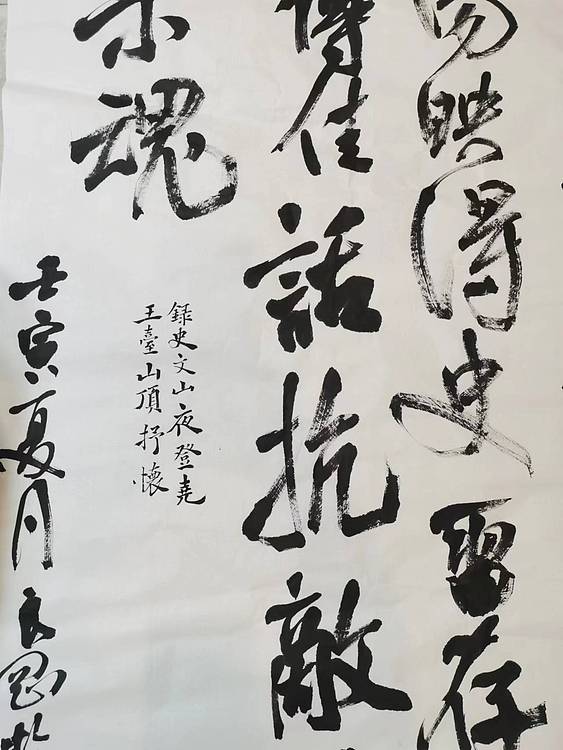 映得史留存
傳佳話抗敵
魂
録史文山夜登堯
王臺山頂抒懷
壬寅夏月